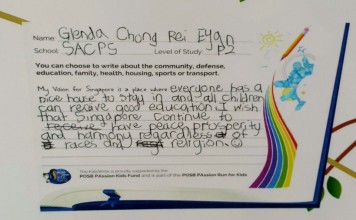 Name: Glenda Chong Rei Eyan
School: SACPS Level of Study: P2
You can choose to write about the community, defense,
education, family, health, housing, sports or transport.
My Vision for Singapore is a place where everyone has a
nice house to stay in and all children
can receive good education. I wish
that Singapore continue to
have peace, prosperity
and harmony regardless of
races and religion
POSB PAssion Kids Fund and is part of the POSB PAssion Run for Kids